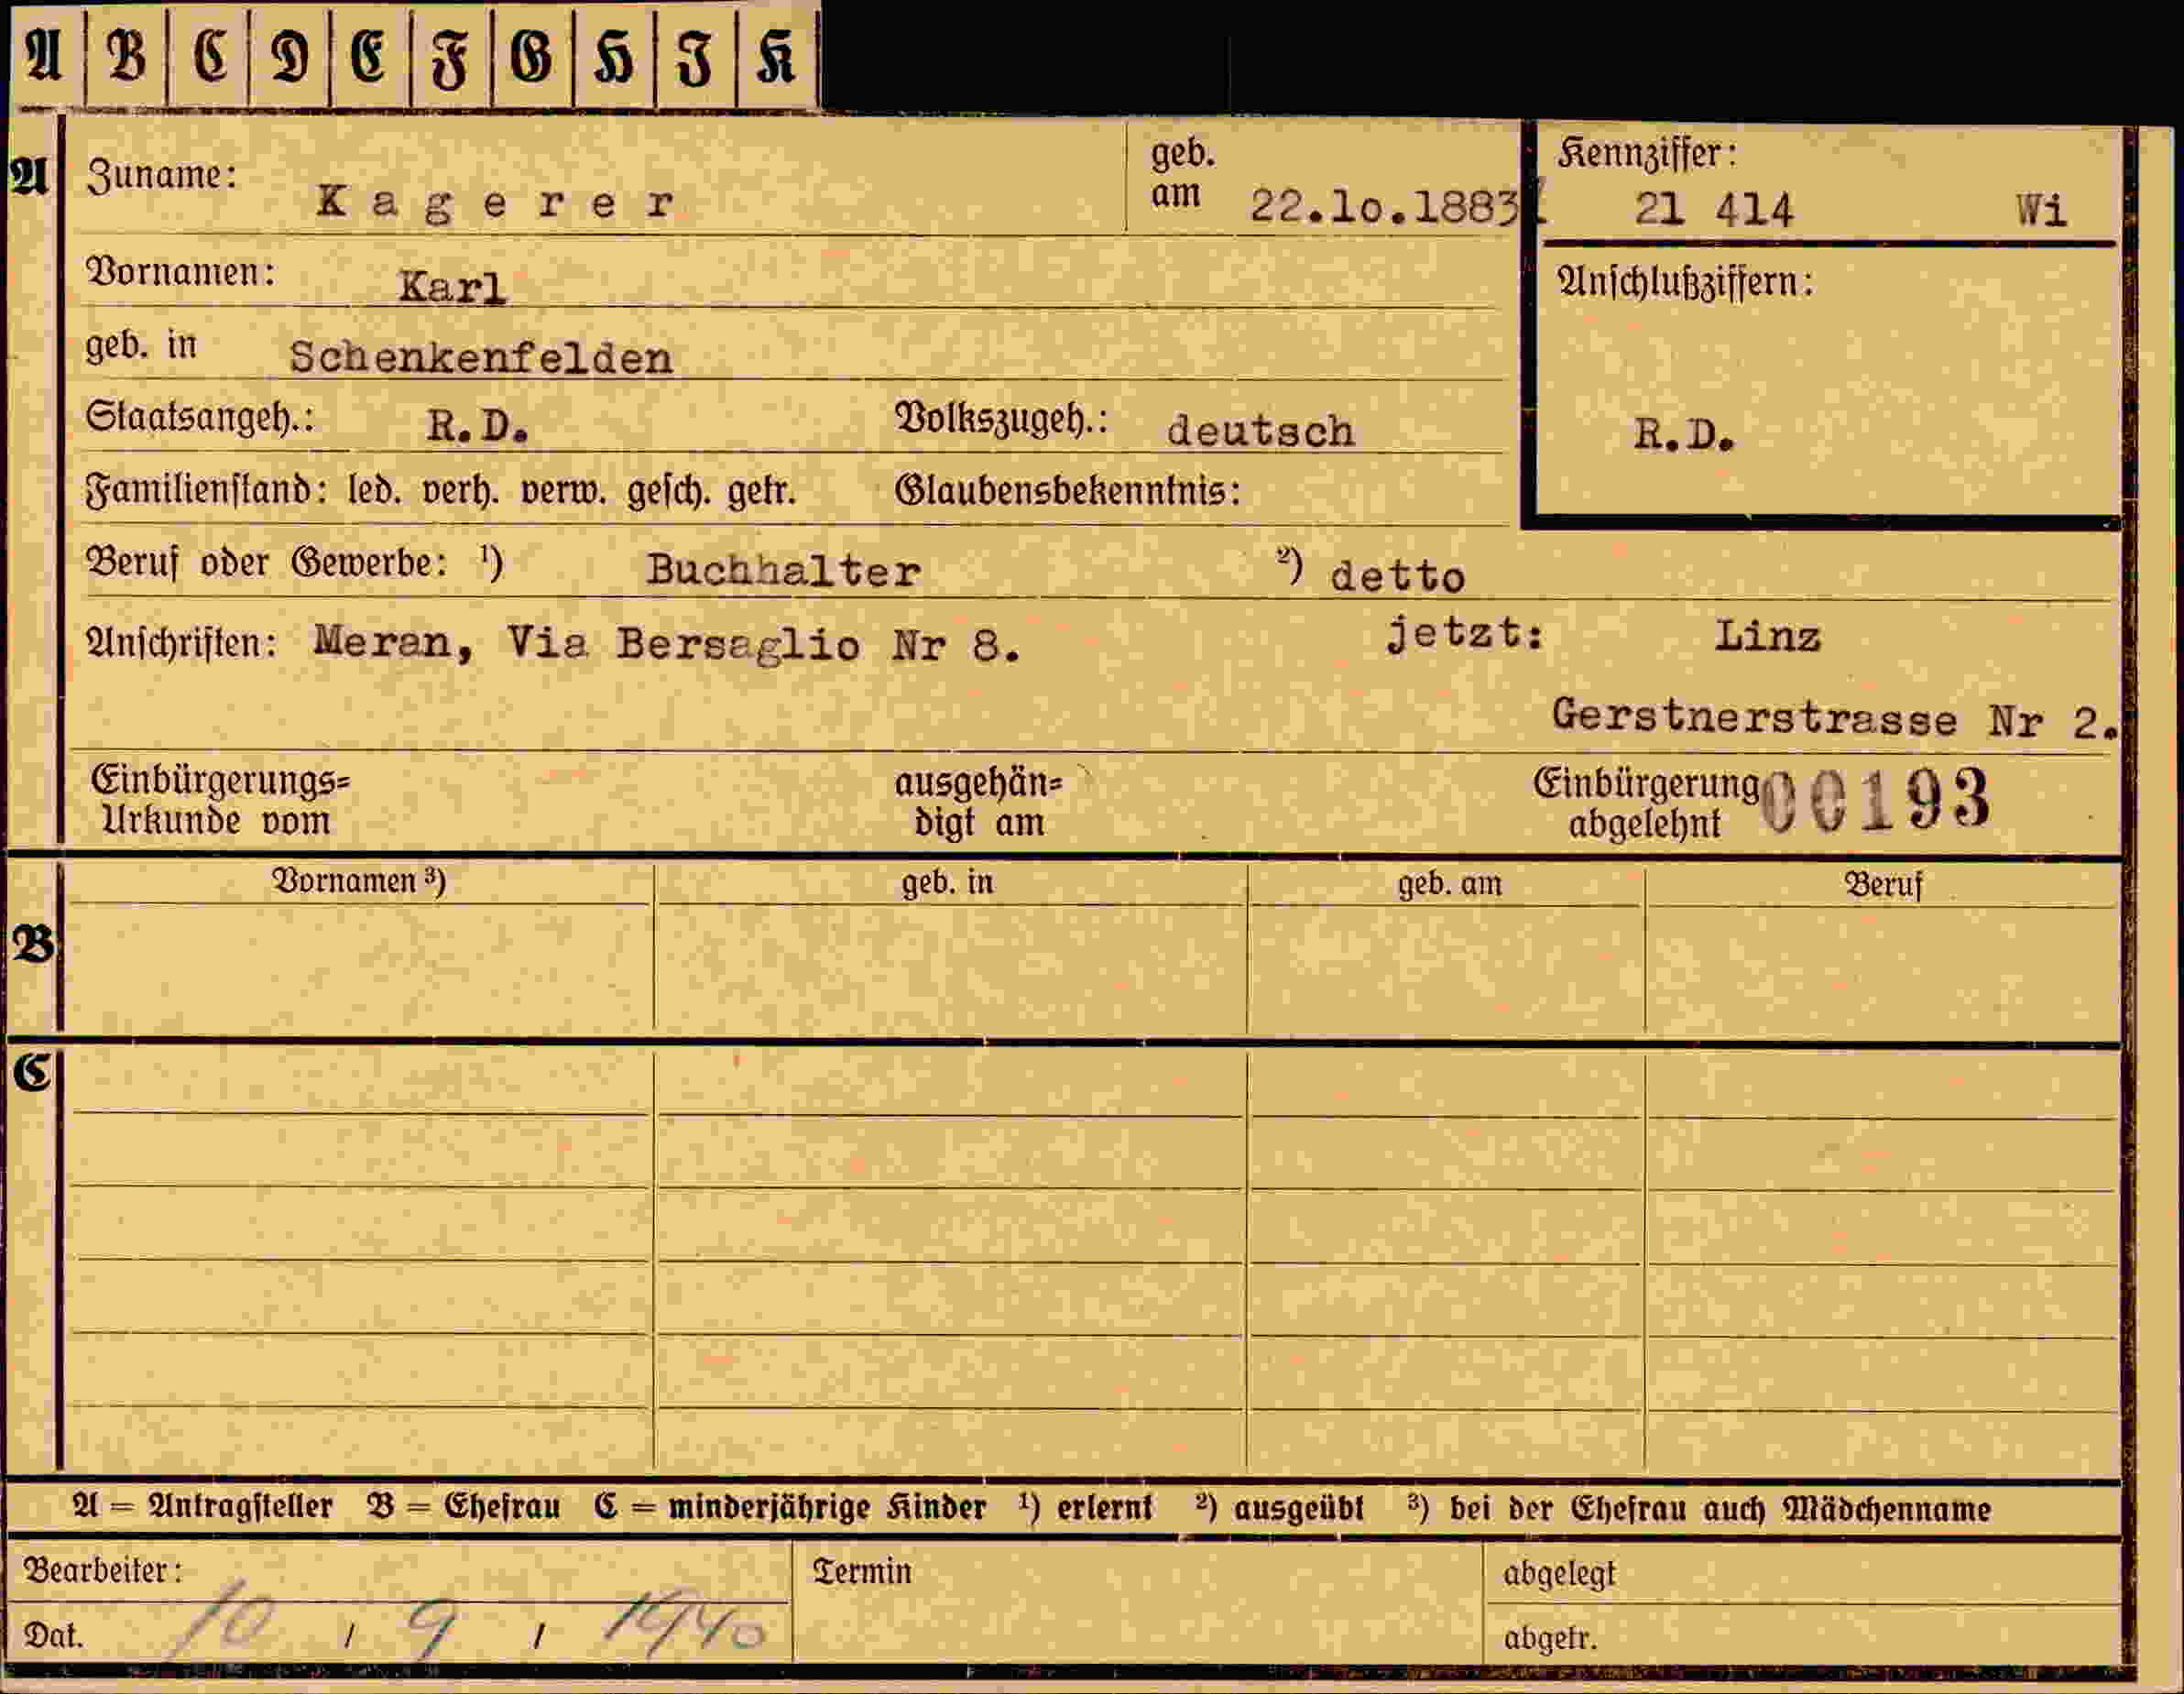 A B C D E F G H I K
A Zuname: Kagerer geb. am 22.10.1883 Kennziffer: 21 414 Wi
Vornamen: Karl Anschlußziffern:
geb. in Schenkenfelden
Staatsangeh.: R.D. Volkszugeh.: deutsch R.D.
Familienstand: led. verh. verw. gesch. getr. Glaubensbekenntnis:
Beruf oder Gewerbe: ¹) Buchhalter ²) detto
Anschriften: Meran, Via Bersaglio Nr 8. jetzt: Linz
Gerstnerstrasse Nr 2.
Einbürgerungs= ausgehän= Einbürgerung 00193
Urkunde vom digt am abgelehnt
Vornamen ³) geb. in geb. am Beruf
B
C
A = Antragsteller B = Ehefrau C = minderjährige Kinder ¹) erlernt ²) ausgeübt ³) bei der Ehefrau auch Mädchenname
Bearbeiter: Termin abgelegt
Dat. 10 / 9 / 1940 abgetr.